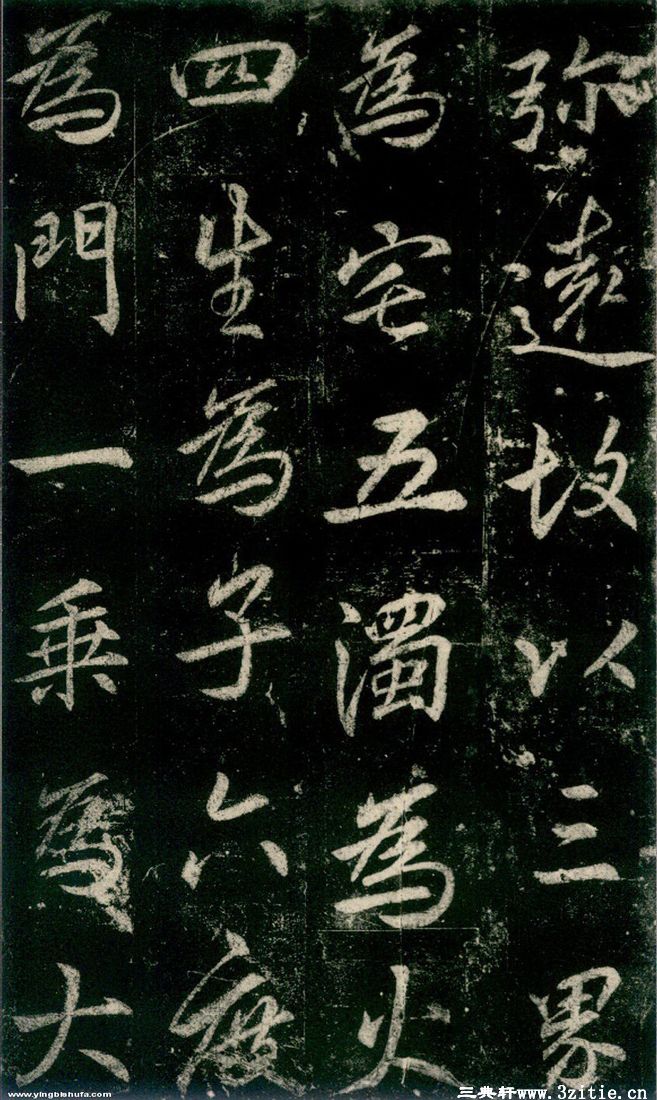 弥遠故以三界
為宅五濁為火
四生為子六度
為門一乘為大
www.yingbishufa.com
三典轩 www.3zitie.cn